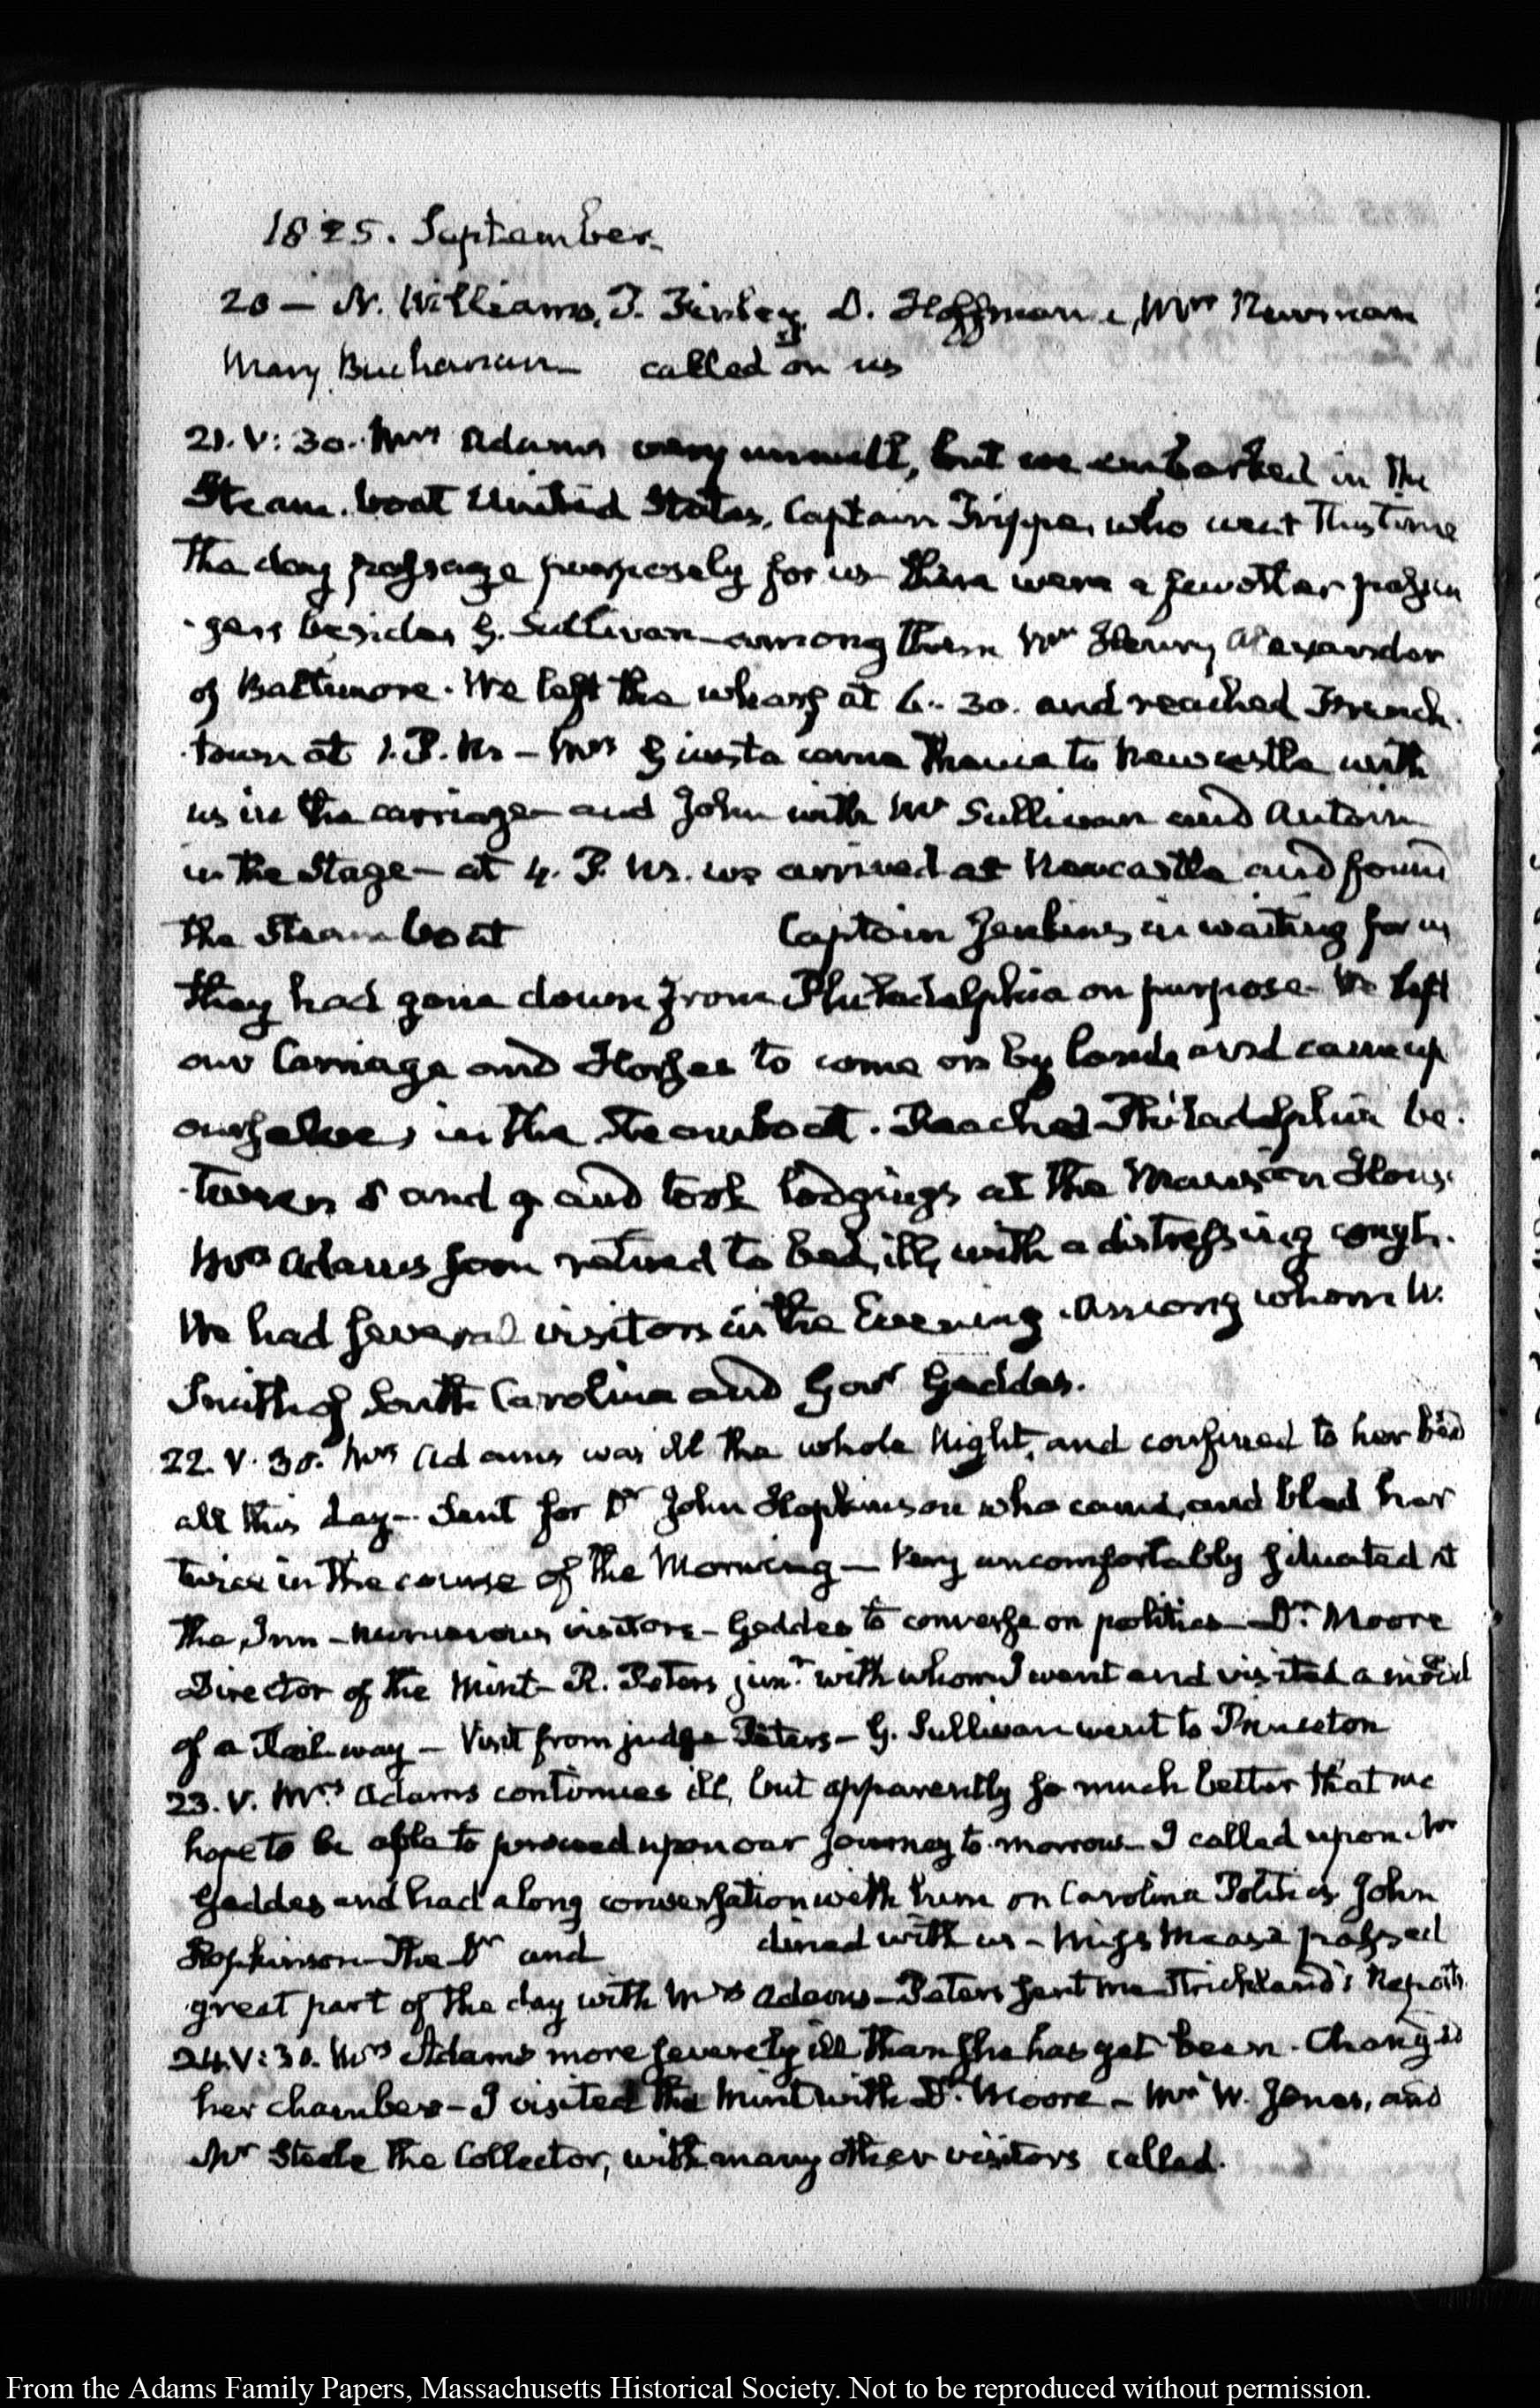 1825. September.
20 — N. Williams, T. Finley, D. Hoffman, Mrs Newman
Mary Buchanan — called on us
21. V: 30. Mrs Adams very unwell, but we embarked in the
Steam-boat United States, Captain Trippe, who went this time
the day passage purposely for us there were a few other passen
-gers besides G. Sullivan — among them Wm Henry Alexander
of Baltimore. We left the wharf at 6.. 30. and reached French-
-town at 1. P.M. — Mrs Giusta came thence to Newcastle with
us in the carriage — and John with Mr Sullivan and Antoine
in the Stage — at 4. P.M. we arrived at Newcastle and found
the Steam boat Captain Jenkins in waiting for us
they had gone down from Philadelphia on purpose — We left
our Carriage and Horses to come on by land and came up
ourselves in the Steamboat. Reached Philadelphia be-
-tween 8 and 9 and took lodgings at the Mansion House
Mrs Adams soon retired to bed, ill, with a distressing cough.
We had several visitors in the Evening. Among whom W.
Smith of South Carolina and Govr Geddes.
22. V. 30. Mrs Adams was ill the whole Night, and confined to her bed
all this day — Sent for Dr John Hopkinson who came, and bled her
twice in the course of the Morning — Very uncomfortably situated at
the Inn — numerous visitors — Geddes to converse on politics — Dr. Moore
Director of the Mint — R. Peters junr. with whom I went and visited a model
of a Rail-way — Visit from judge Peters — G. Sullivan went to Princeton
23. V. Mrs Adams continues ill, but apparently so much better that we
hope to be able to proceed upon our journey to-morrow — I called upon Mr
Geddes and had a long conversation with him on Carolina Politics. John
Hopkinson — The Dr and dined with us — Miss Mease passed
great part of the day with Mrs Adams — Peters sent me Strickland's Reports
24. V: 30. Mrs Adams more severely ill than she has yet been. Changed
her chamber — I visited the Mint with Dr. Moore — Mr W. Jones, and
Mr Steele the Collector, with many other visitors called.
From the Adams Family Papers, Massachusetts Historical Society. Not to be reproduced without permission.